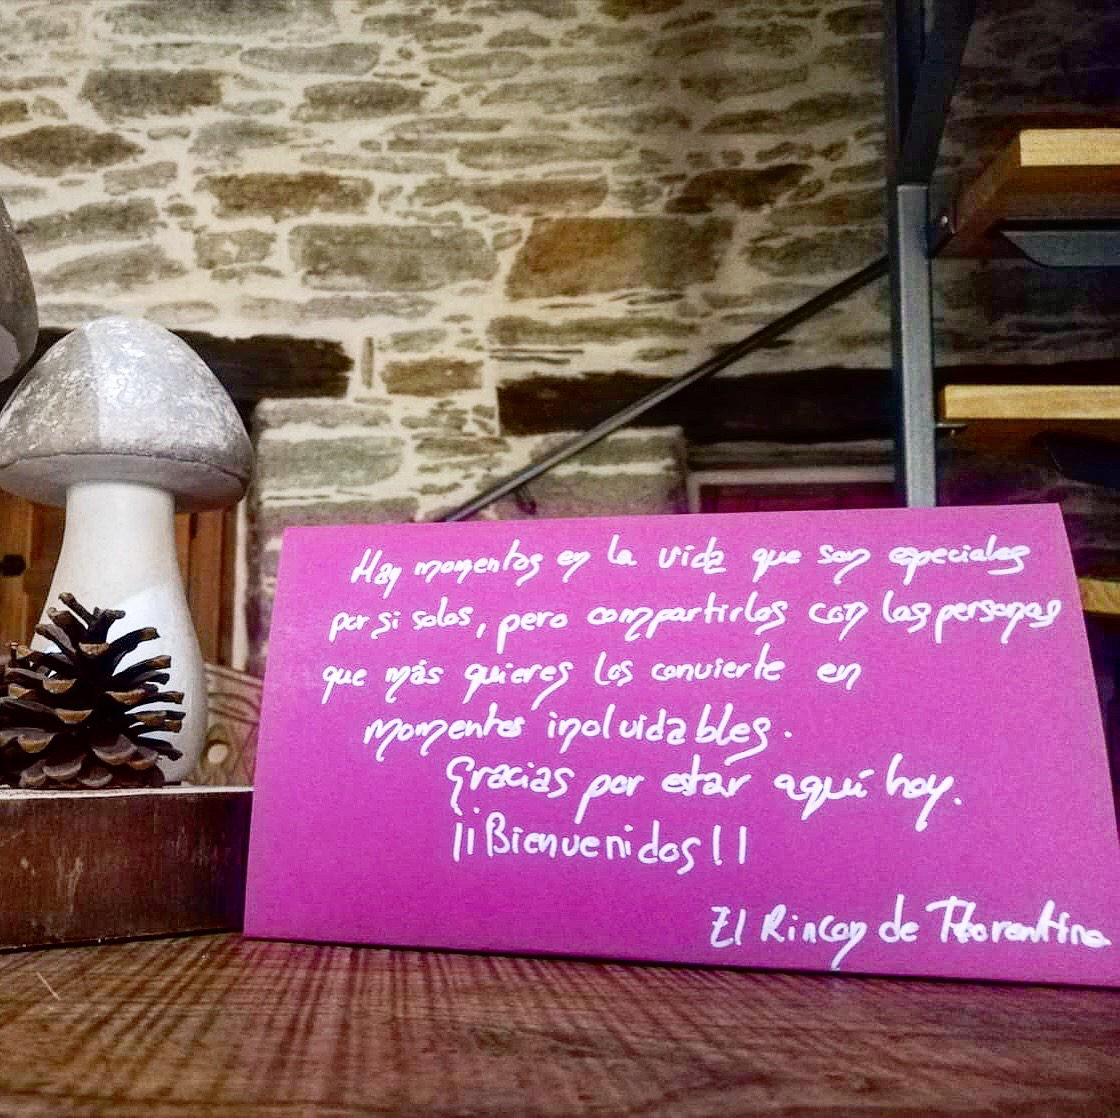 Hay momentos en la vida que son especiales
por si solos, pero compartirlos con las personas
que más quieres los convierte en
momentos inolvidables.
Gracias por estar aquí hoy.
¡¡Bienvenidos!!
El Rincon de Florentino